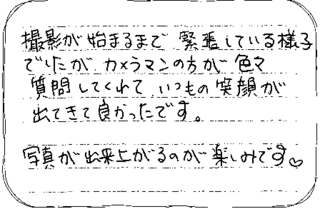 撮影が始まるまで 緊張している様子
でしたが カメラマンの方が 色々
質問してくれて いつもの 笑顔が
出てきて良かったです。
写真が出来上がるのが 楽しみです♡